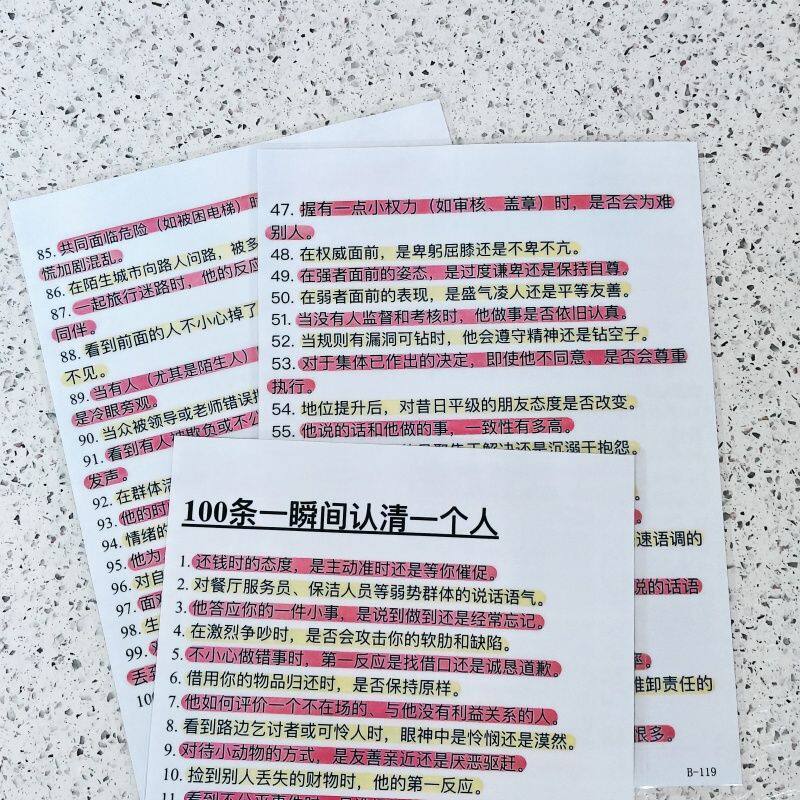 100条一瞬间认清一个人
1. 还钱时的态度，是主动准时还是等你催促。
2. 对餐厅服务员、保洁人员等弱势群体的说话语气。
3. 他答应你的一件小事，是说到做到还是经常忘记。
4. 在激烈争吵时，是否会攻击你的软肋和缺陷。
5. 不小心做错事时，第一反应是找借口还是诚恳道歉。
6. 借用你的物品归还时，是否保持原样。
7. 他如何评价一个不在场的、与他没有利益关系的人。
8. 看到路边乞讨者或可怜人时，眼神中是怜悯还是漠然。
9. 对待小动物的方式，是友善亲近还是厌恶驱赶。
10. 捡到别人丢失的财物时，他的第一反应。
47. 握有一点小权力（如审核、盖章）时，是否会为难
别人。
48. 在权威面前，是卑躬屈膝还是不卑不亢。
49. 在强者面前的姿态，是过度谦卑还是保持自尊。
50. 在弱者面前的表现，是盛气凌人还是平等友善。
51. 当没有人监督和考核时，他做事是否依旧认真。
52. 当规则有漏洞可钻时，他会遵守精神还是钻空子。
53. 对于集体已作出的决定，即使他不同意，是否会尊重
执行。
54. 地位提升后，对昔日平级的朋友态度是否改变。
55. 他说的话和他做的事，一致性有多高。
解决还是沉溺于抱怨。
速语调的
说的话语
卸责任的
很多。
B-119
85. 共同面临危险（如被困电梯）时
慌加剧混乱。
86. 在陌生城市向路人问路，被多
87. 一起旅行迷路时，他的反应
同伴。
88. 看到前面的人不小心掉了
不见。
89. 当有人（尤其是陌生人）
是冷眼旁观。
90. 当众被领导或老师错误
91. 看到有人被欺负或不公
发声。
92. 在群体活
93. 他的时
94. 情绪的
95. 他为
96. 对自
97. 面对
98. 生
99.
丢到
10